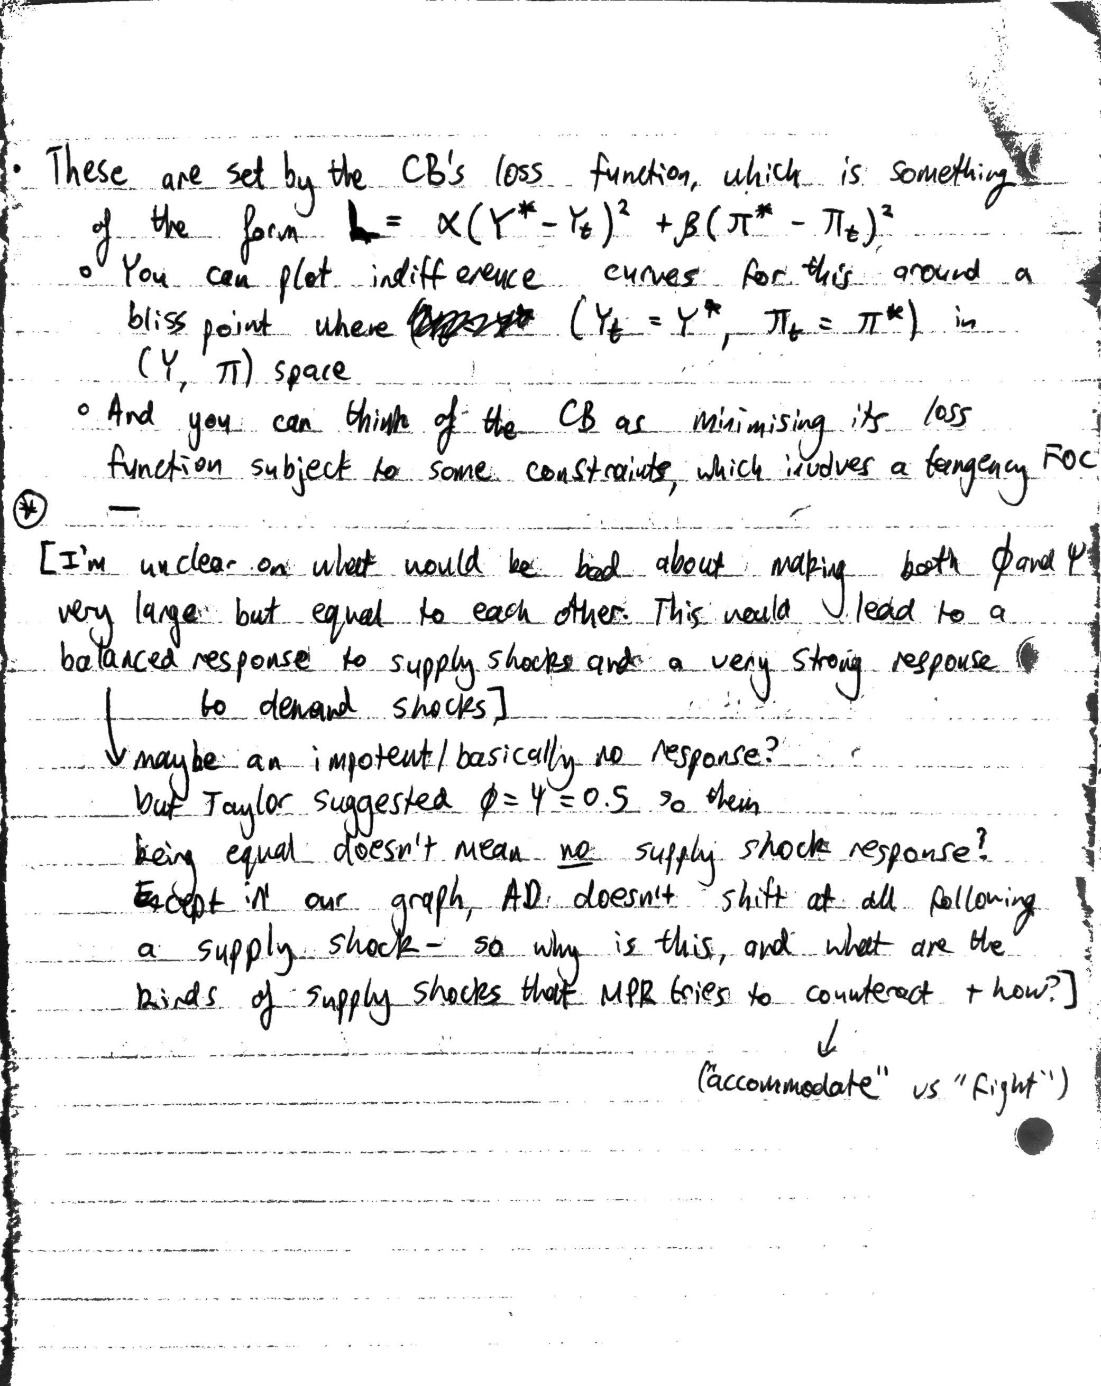 • These are set by the CB's loss function, which is something
of the form L = α(Y* - Yt)² + β(π* - πt)²
∘ You can plot indifference curves for this around a
bliss point where (Yt = Y*, πt = π*) in
(Y, π) space
∘ And you can think of the CB as minimising its loss
function subject to some constraints, which involves a tangency FOC
⊛ —
[I'm unclear on what would be bad about making both ϕ and ψ
very large but equal to each other. This would lead to a
balanced response to supply shocks and a very strong response
to demand shocks]
↓ maybe an impotent/basically no response?
but Taylor suggested ϕ = ψ = 0.5 so them
being equal doesn't mean no supply shock response?
Except in our graph, AD doesn't shift at all following
a supply shock - so why is this, and what are the
kinds of supply shocks that MPR tries to counteract + how?]
↓
("accommodate" vs "fight")